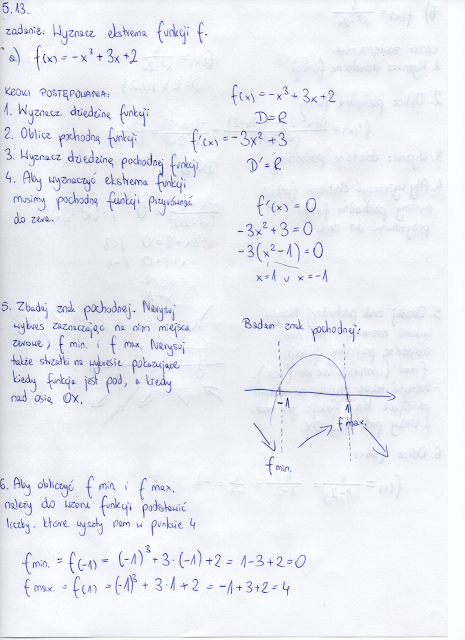 5.13.
zadanie: Wyznacz ekstrema funkcji f.
a) f(x) = -x³ + 3x + 2
KROKI POSTĘPOWANIA:
f(x) = -x³ + 3x + 2
1. Wyznacz dziedzinę funkcji
D = R
2. Oblicz pochodną funkcji
f'(x) = -3x² + 3
3. Wyznacz dziedzinę pochodnej funkcji
D' = R
4. Aby wyznaczyć ekstrema funkcji
musimy pochodną funkcji przyrównać
do zera.
f'(x) = 0
-3x² + 3 = 0
-3(x² - 1) = 0
x = 1 ∪ x = -1
5. Zbadaj znak pochodnej. Narysuj
wykres zaznaczając na nim miejsca
zerowe, f min. i f max. Narysuj
także strzałki na wykresie pokazujące
kiedy funkcja jest pod, a kiedy
nad osią OX.
Badam znak pochodnej:
-1 1
f max.
f min.
6. Aby obliczyć f min. i f max.
należy do wzoru funkcji podstawić
liczby, które wyszły nam w punkcie 4
f min. = f(-1) = (-1)³ + 3·(-1) + 2 = 1 - 3 + 2 = 0
f max. = f(1) = (-1)³ + 3·1 + 2 = -1 + 3 + 2 = 4